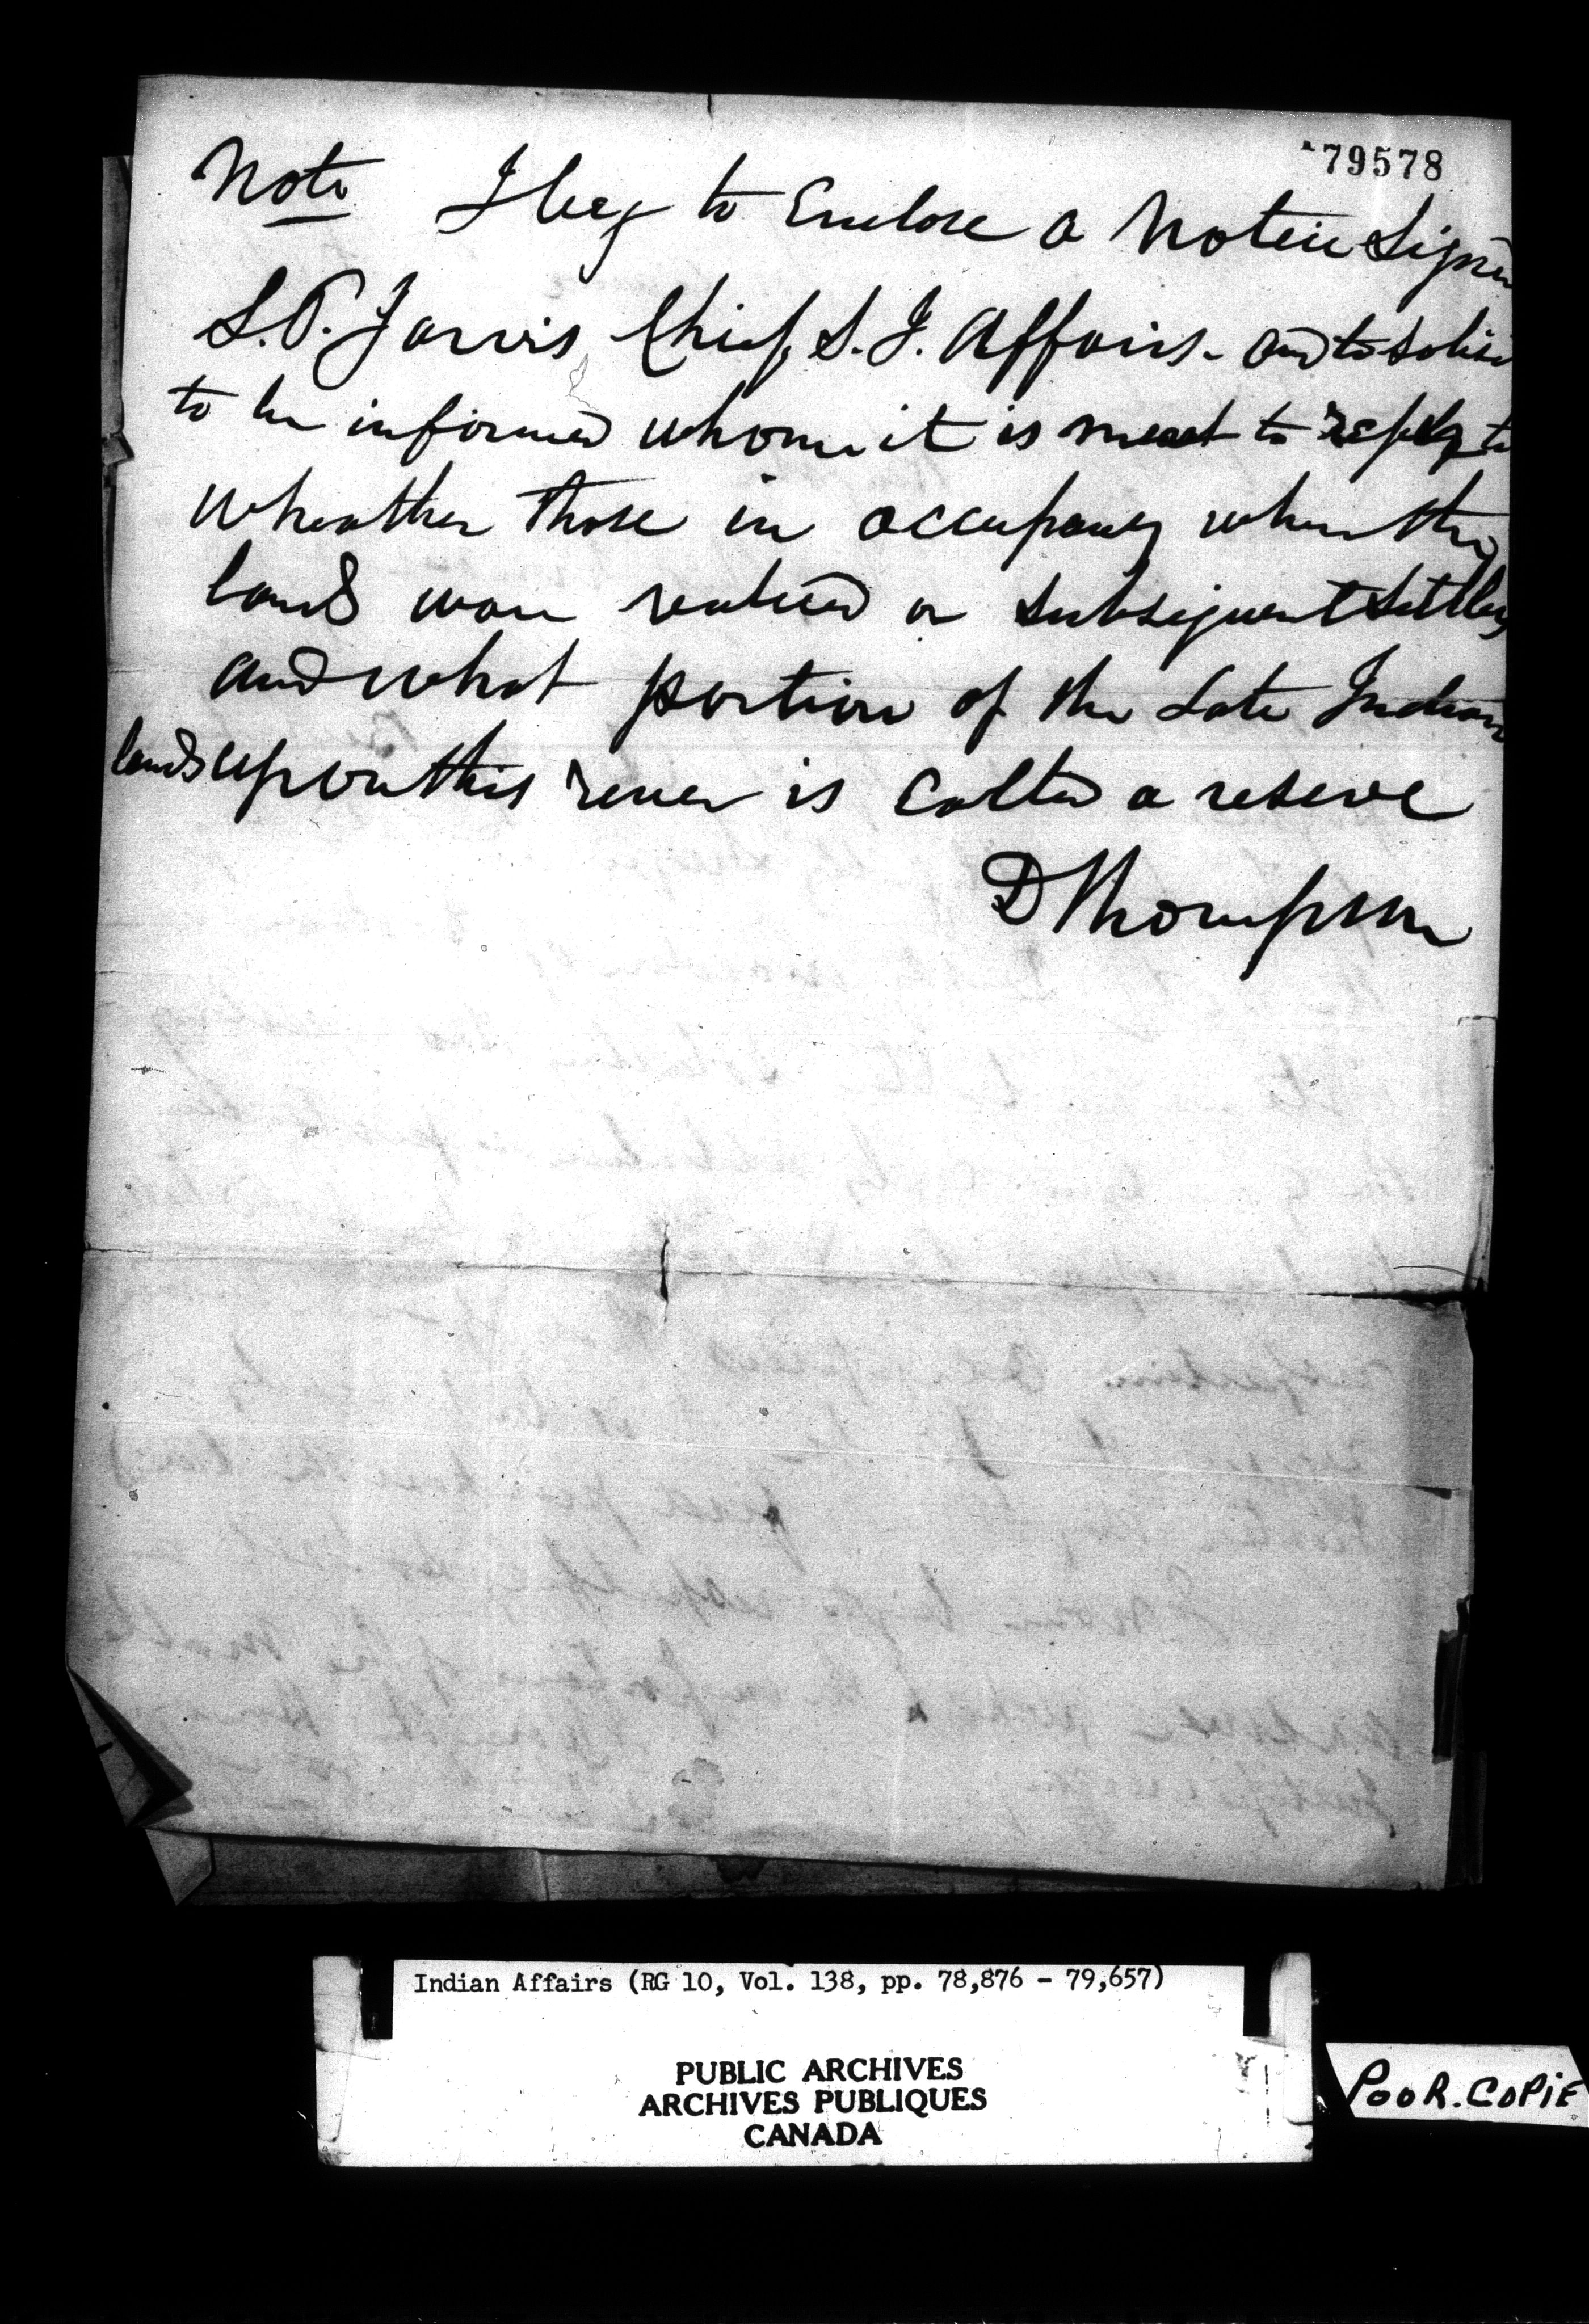 79578
Note I beg to Enclose a Notice Signed
S.P. Jarvis Chief S. I. Affairs - and to Solicit
to be informed whom it is meant to to
wheather those in occupancy when the
lands ware or subsequent Settlers
and what portion of the Late Indian
lands upon this rever is Called a reserve
D Thompson
Indian Affairs (RG 10, Vol. 138, pp. 78,876 - 79,657)
PUBLIC ARCHIVES
ARCHIVES PUBLIQUES
CANADA
POOR.COPIE